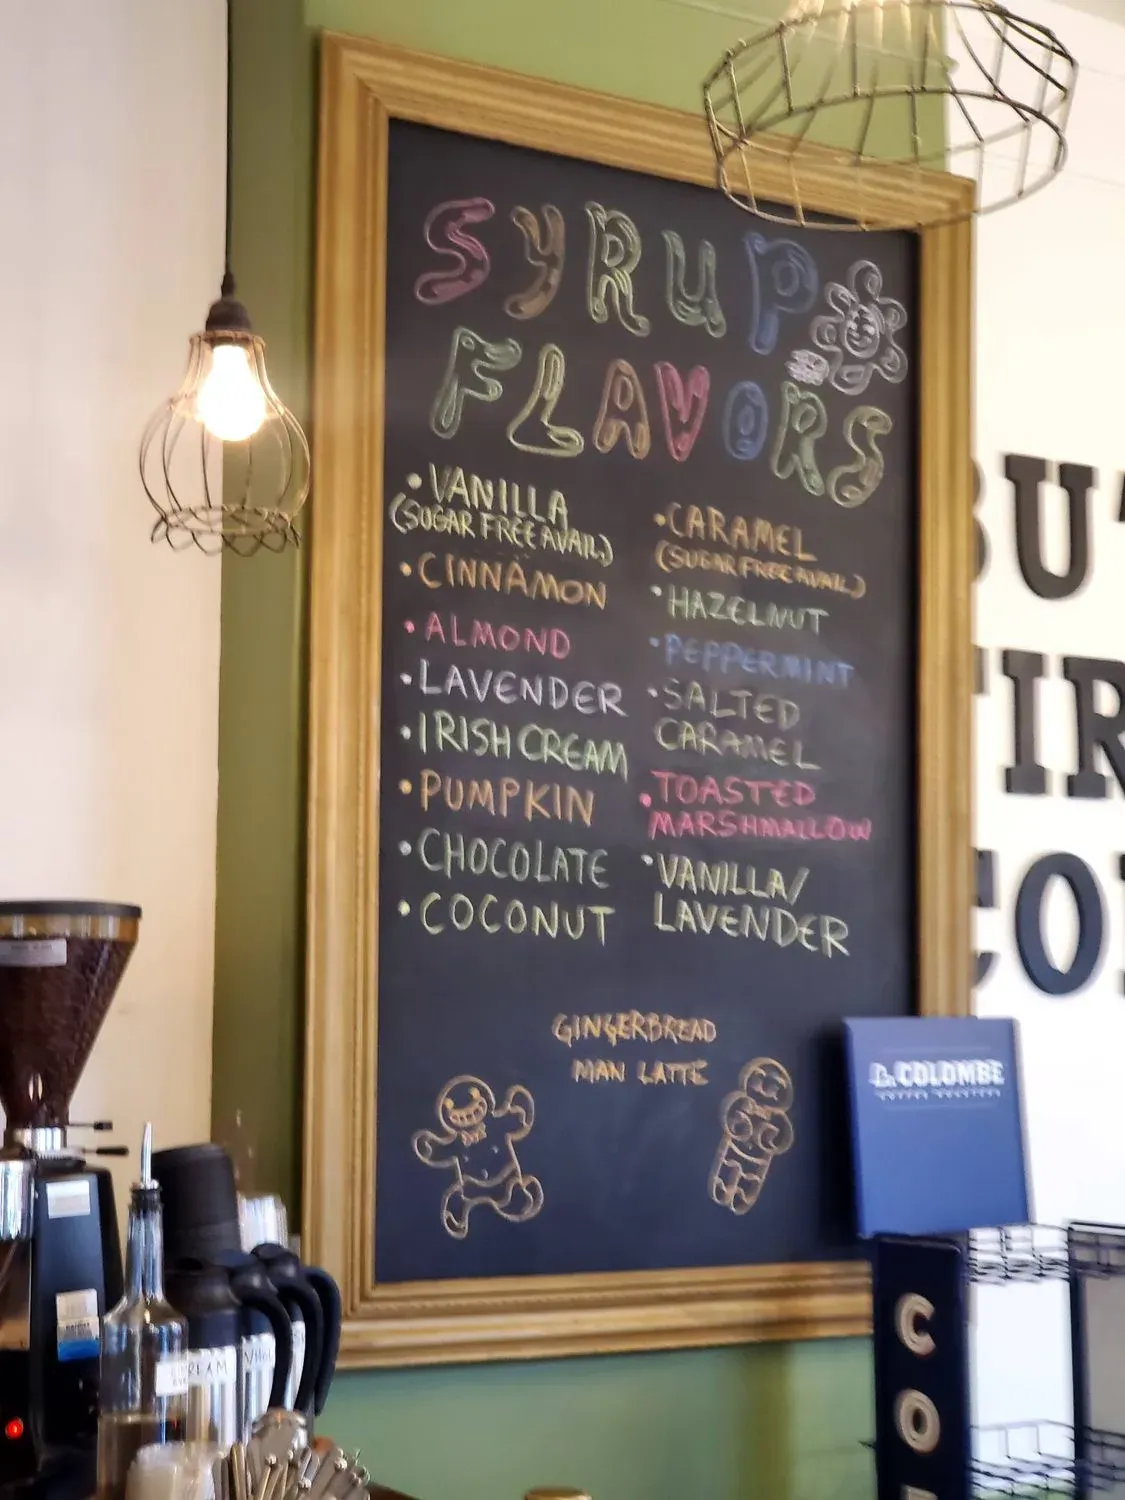 SYRUP
FLAVORS
• VANILLA
(SUGAR FREE AVAIL)
• CINNAMON
• ALMOND
• LAVENDER
• IRISH CREAM
• PUMPKIN
• CHOCOLATE
• COCONUT
• CARAMEL
(SUGAR FREE AVAIL.)
• HAZELNUT
• PEPPERMINT
• SALTED
CARAMEL
• TOASTED
MARSHMALLOW
• VANILLA/
LAVENDER
GINGERBREAD
MAN LATTE
La COLOMBE
COFFEE ROASTERS